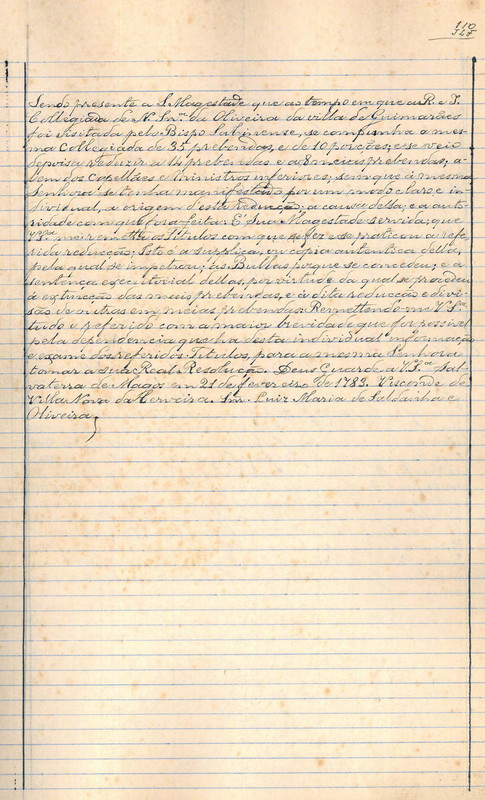 110
348
Sendo presente a S. Magestade que ao tempo em que a R. e I.
Collegiada de N. Snr.ª da Oliveira da villa de Guimarães
foi visitada pelo Bispo Sabinense, se compunha a mes-
ma Collegiada de 35 prebendas, e de 10 porções; e se veio
depois a reduzir a 14 prebendas e a 8 meias prebendas, a-
lem dos Capellães e Ministros inferiores; sem que á mesma
Senhora se tenha manifestado por um modo claro e in-
dividual, a origem d'esta reducção; a causa della; e a auto-
ridade com que fora feita: E' Sua Magestade servida; que
V. S.ª me remetta os Titulos com que se fez e se praticou a refe-
rida reducção; Isto é a supplica, ou copia autentica della,
pela qual se impetrou; as Bullas porque se concedeu; e a
sentença executorial dellas, por virtude da qual se procedeu
á extincção das meias prebendas, e á dita reducção e divi-
são de outras em meias prebendas: Remettendo-me V. S.ª
tudo o referido com a maior brevidade que for possivel
pela dependencia que ha desta individual informação
e exame dos referidos Titulos, para a mesma Senhora
tomar a sua Real Resolução. Deus Guarde a V. S.ª Sal-
vaterra de Magos em 21 de fevereiro de 1783. Visconde de
Villa Nova da Cerveira. Snr. Luiz Maria de Saldanha e
Oliveira